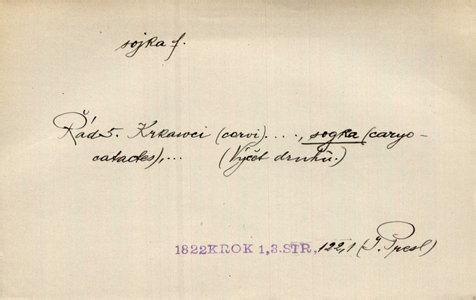 sojka f.
Řád 5. Krkawci (corvi) . . . ., sogka (caryo-
catactes),... (Výčet druhů.)
1822KROK 1,3.STR. 122,1 (J. Presl)